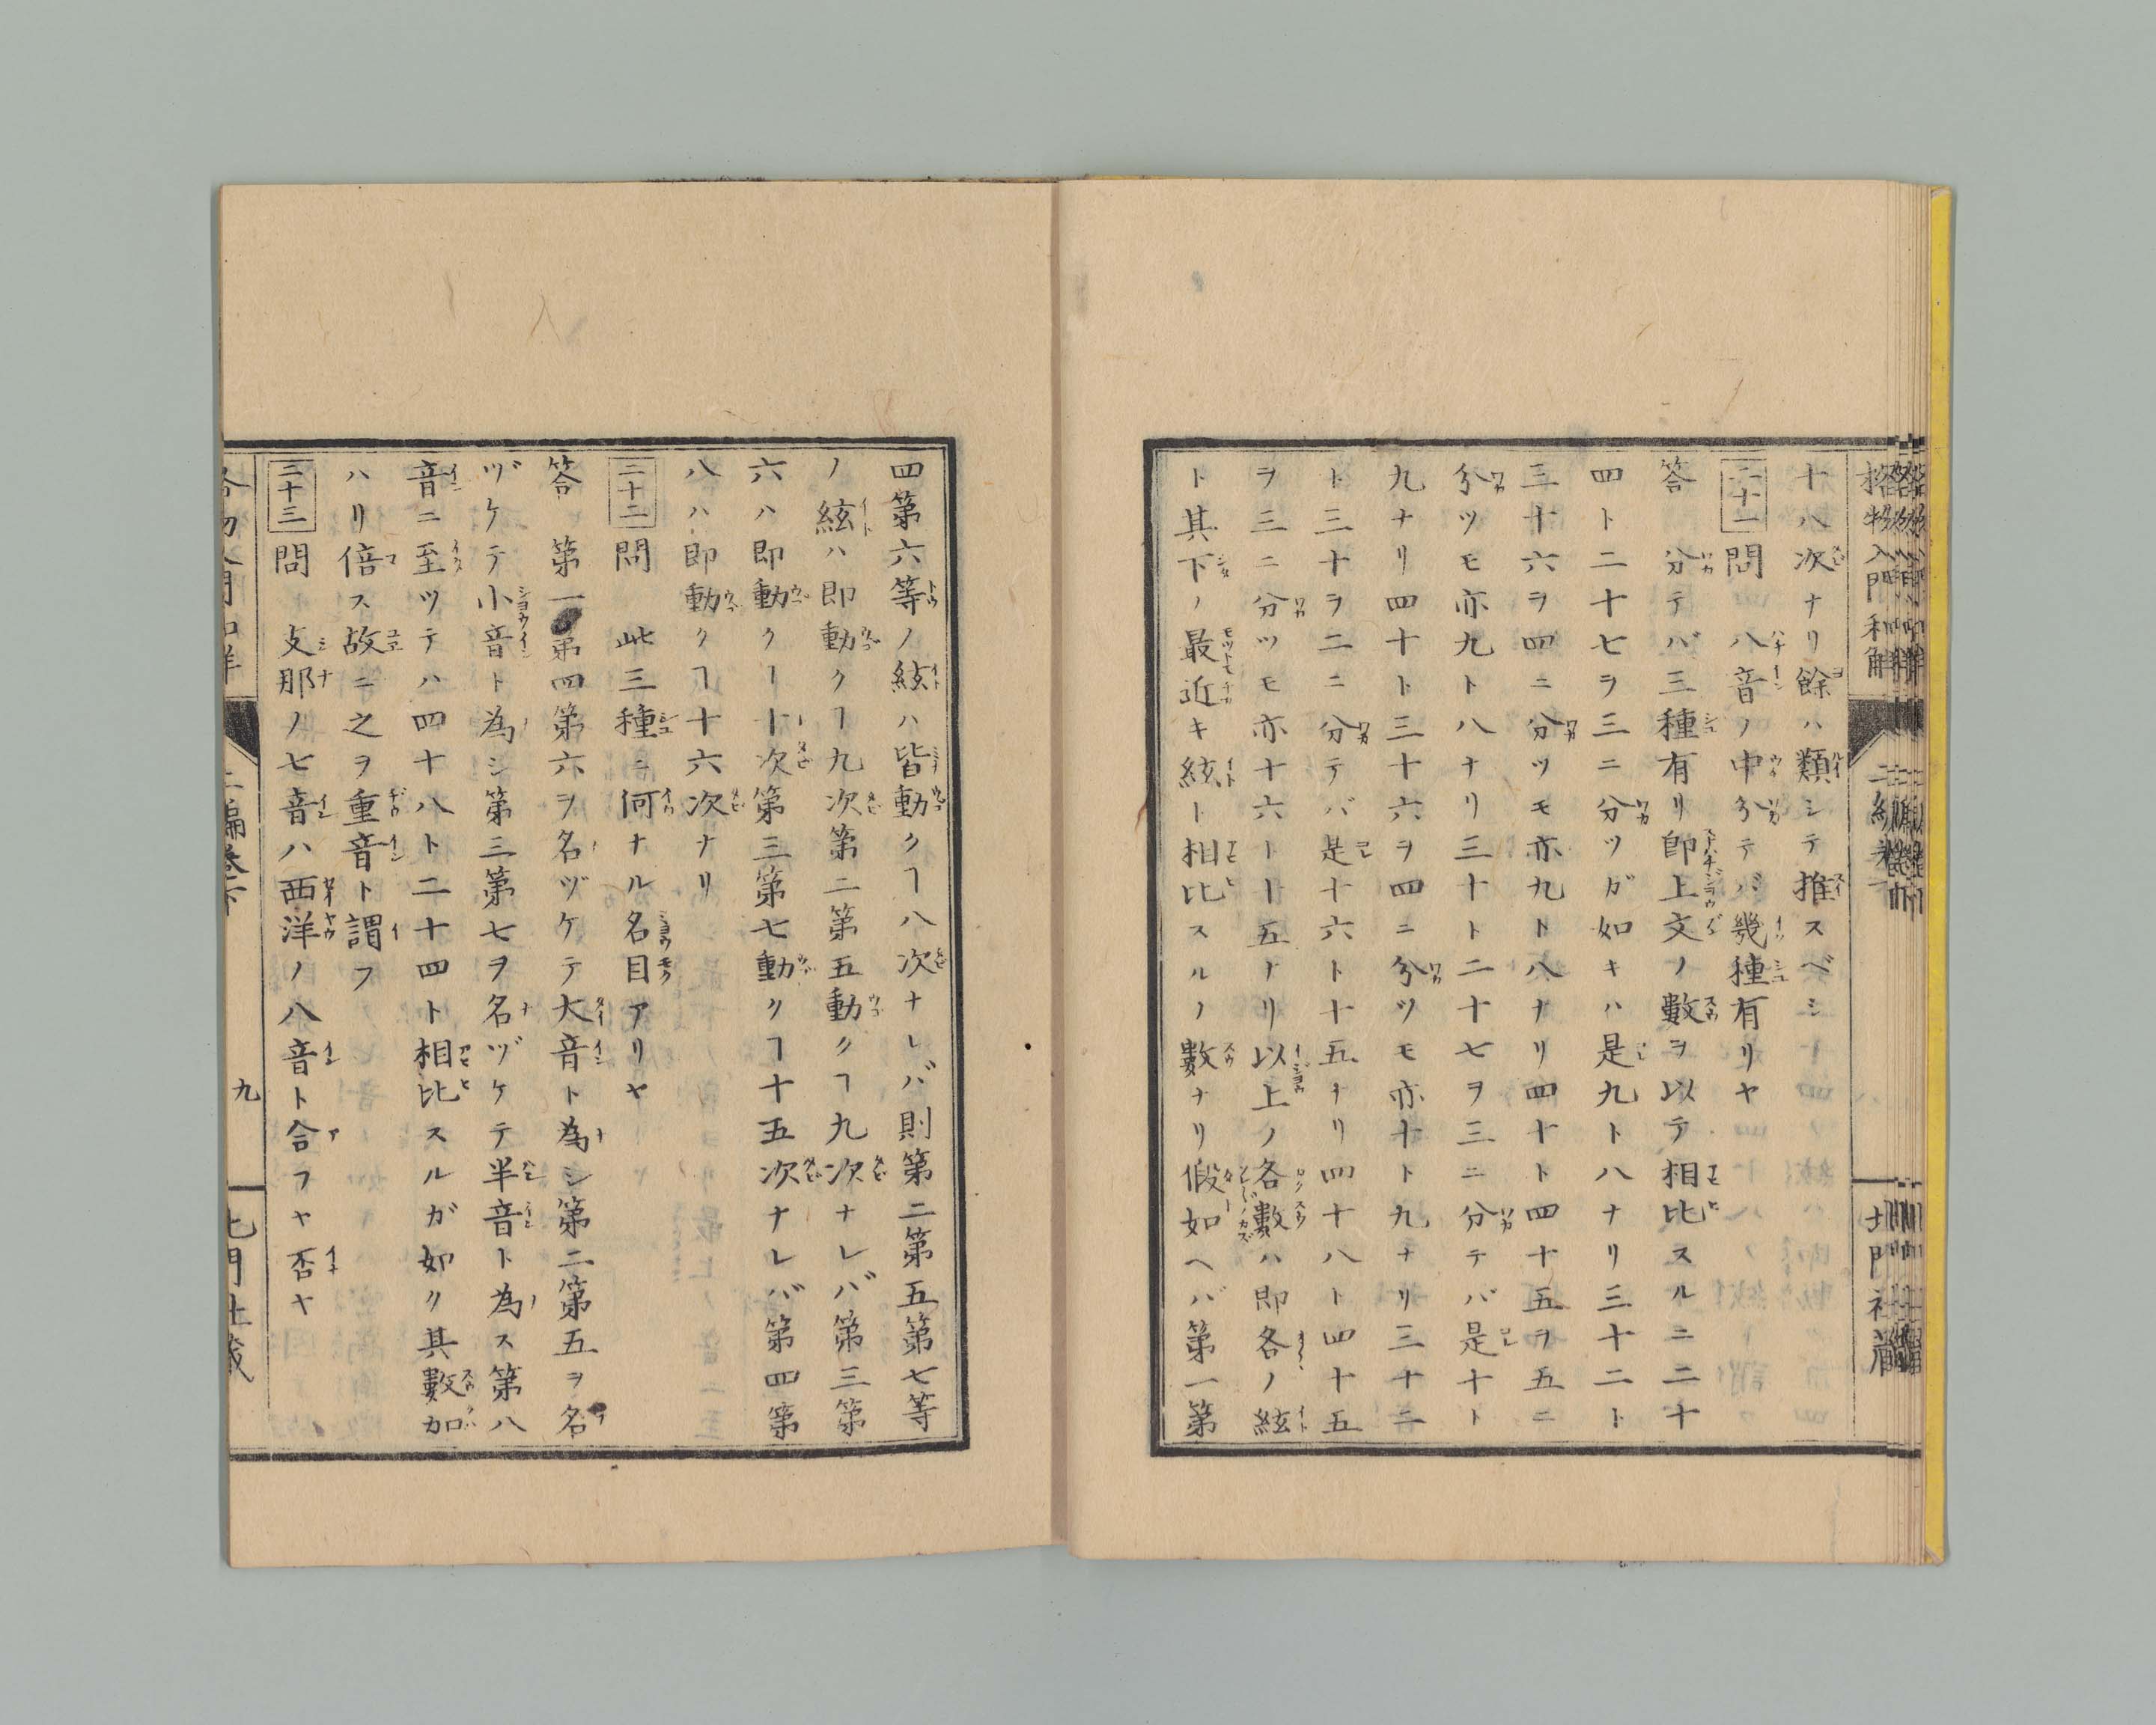 格物入門和解
二編卷
北門社藏
十八次ナリ餘ハ類シテ推スベシ
二十一 問 八音ノ中分テバ幾種有リヤ
答 分テバ三種有リ卽上文ノ數ヲ以テ相比スルニ二十
四ト二十七ヲ三ニ分ツガ如キハ是九ト八ナリ三十二ト
三十六ヲ四ニ分ツモ亦九ト八ナリ四十ト四十五ヲ五ニ
分ツモ亦九ト八ナリ三十ト二十七ヲ三ニ分テバ是十ト
九ナリ四十ト三十六ヲ四ニ分ツモ亦十ト九ナリ三十二
ト三十ヲ二ニ分テバ是十六ト十五ナリ四十八ト四十五
ヲ三ニ分ツモ亦十六ト十五ナリ以上ノ各數ハ即各ノ絃
ト其下ノ最近キ絃ト相比スルノ數ナリ假如ヘバ第一第
四第六等ノ絃ハ皆動クヿ八次ナレバ則第二第五第七等
ノ絃ハ即動クヿ九次第二第五動クヿ九次ナレバ第三第
六ハ即動クヿ十次第三第七動クヿ十五次ナレバ第四第
八ハ即動クヿ十六次ナリ
二十二 問 此三種ニ何ナル名目アリヤ
答 第一第四第六ヲ名ヅケテ大音ト為シ第二第五ヲ名
ヅケテ小音ト為シ第三第七ヲ名ヅケテ半音ト為ス第八
音ニ至ツテハ四十八ト二十四ト相比スルガ如ク其數加
ハリ倍ス故ニ之ヲ重音ト謂フ
二十三 問 支那ノ七音ハ西洋ノ八音ト合フヤ否ヤ
二編卷下
九